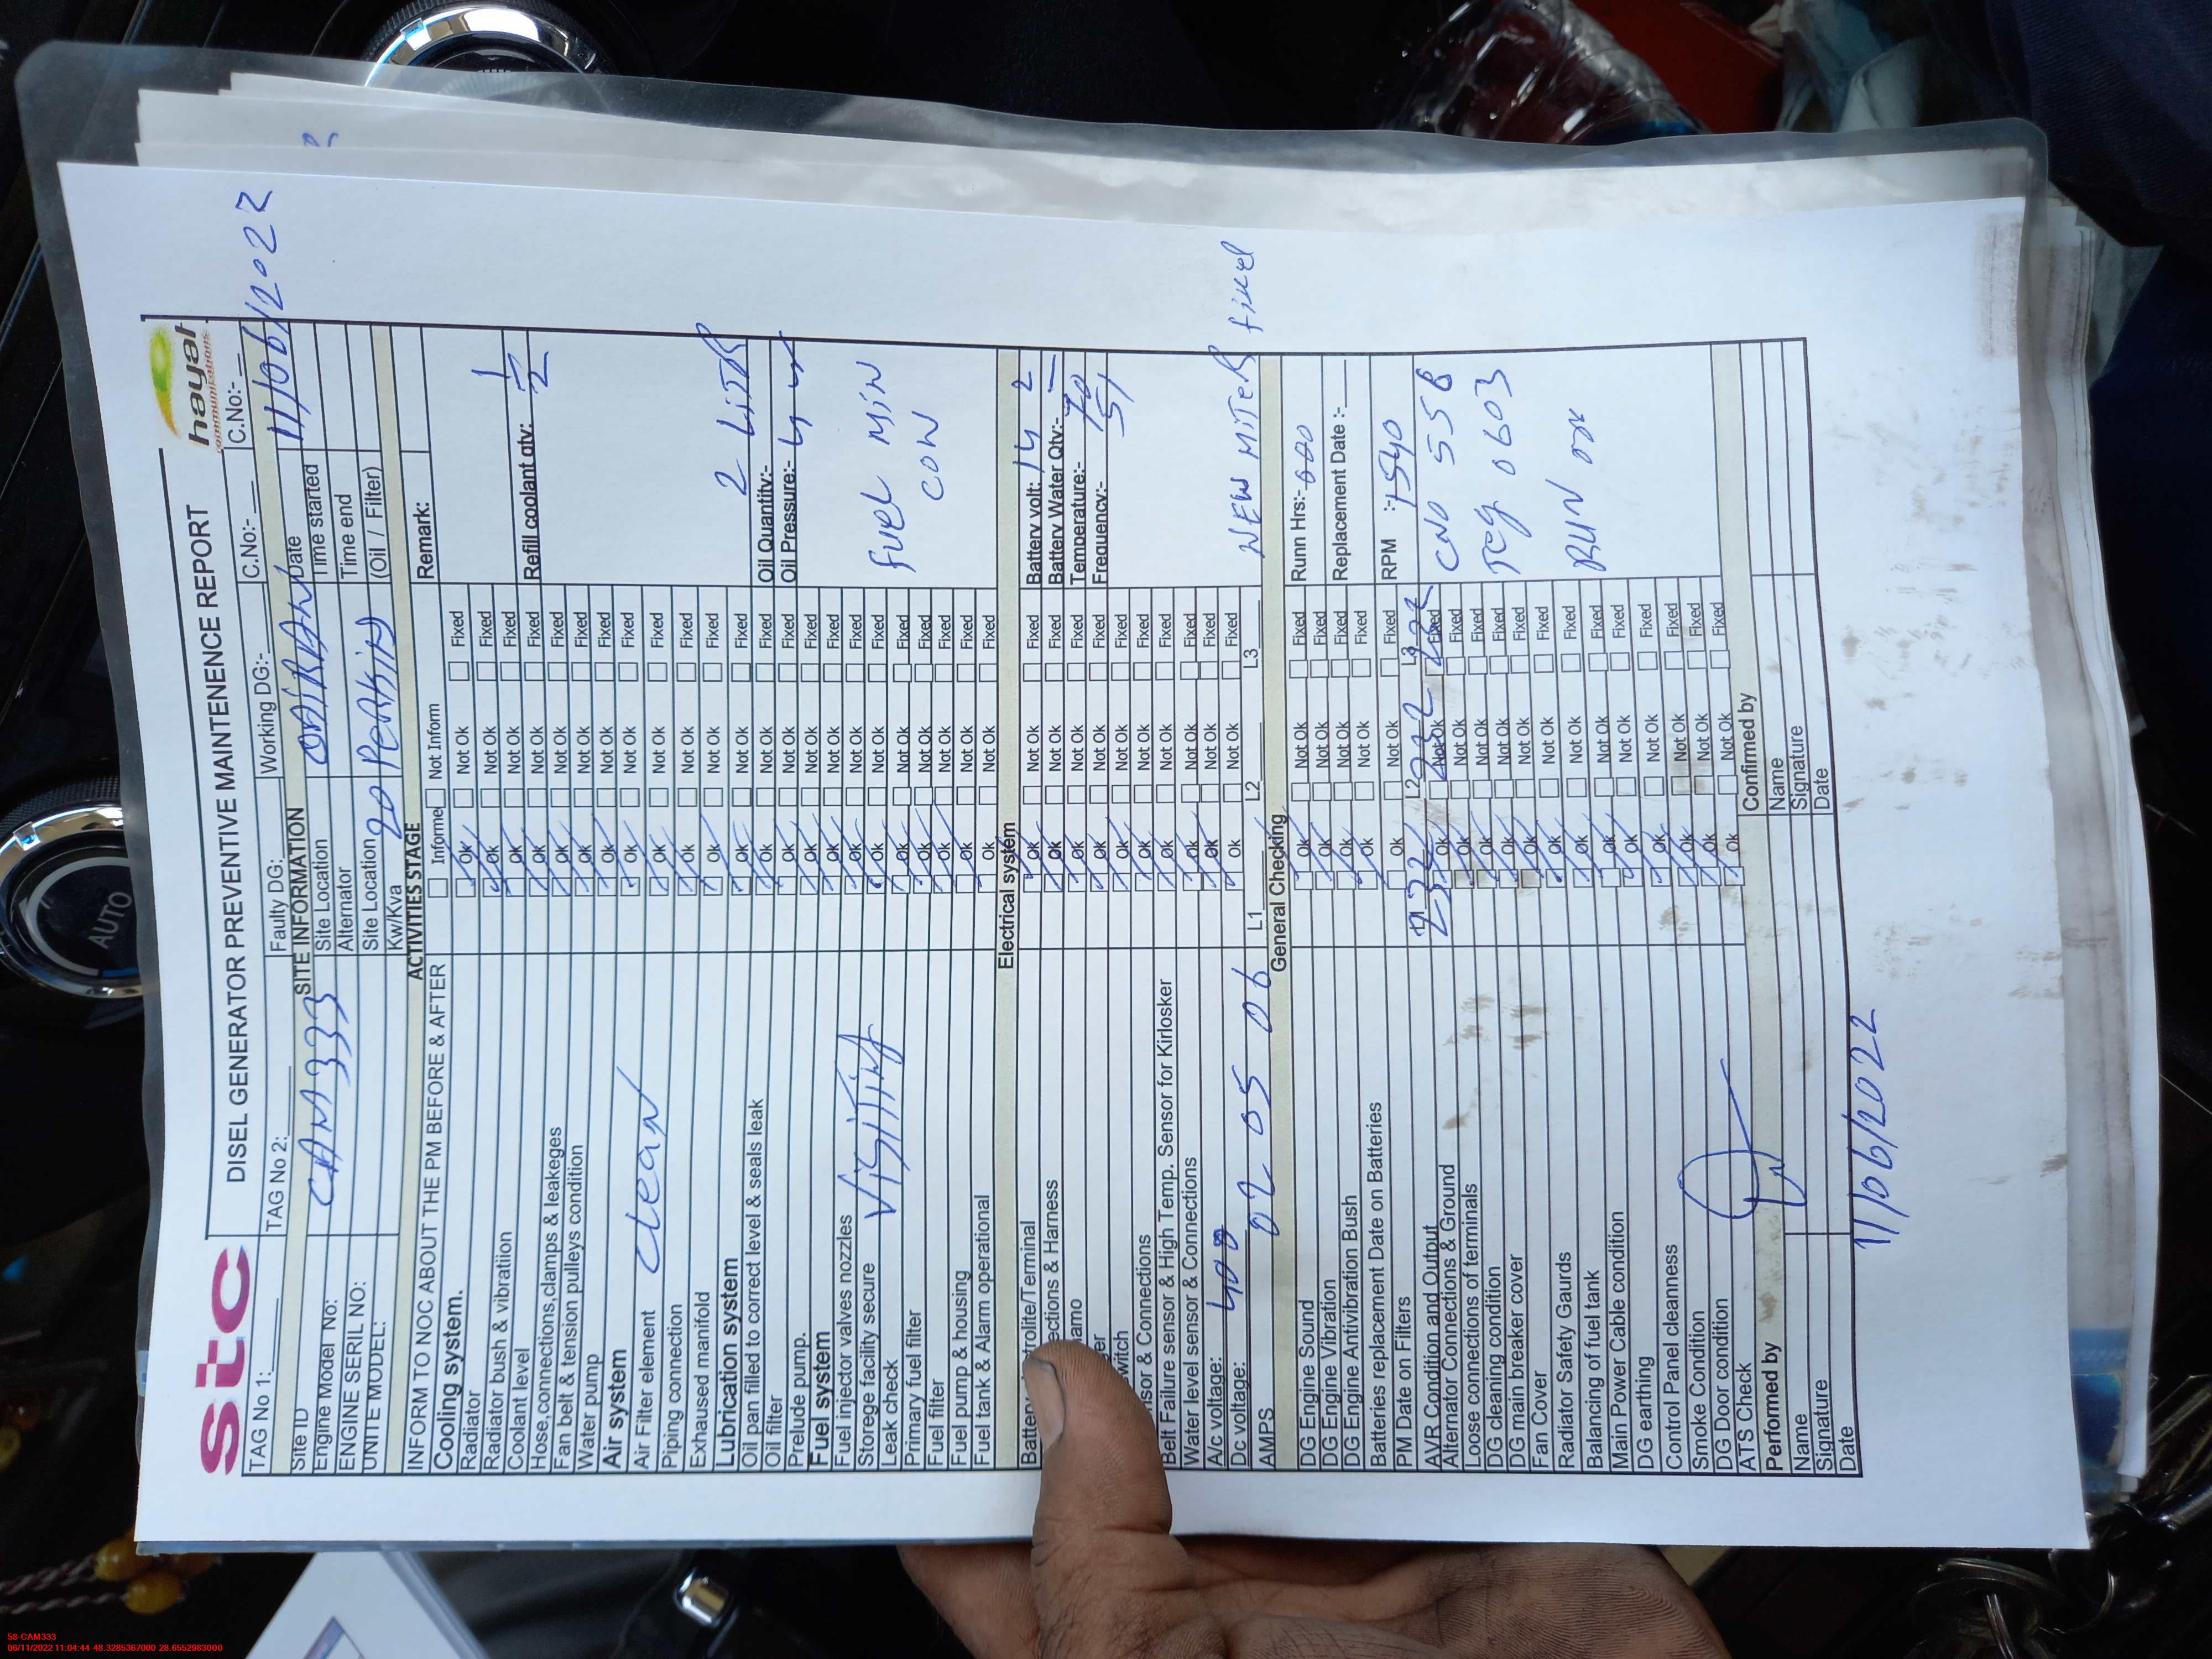 stc
DISEL GENERATOR PREVENTIVE MAINTENENCE REPORT
hayat
ommunications
TAG No 1: TAG No 2: Faulty DG: Working DG:- C.No:- C.No:-
SITE INFORMATION
Site ID CAM333 Site Location Date 11/06/2022
Engine Model No: Alternator Time started
ENGINE SERIL NO: Site Location Time end
UNITE MODEL: Kw/Kva 20 PeRKiN (Oil / Filter)
ACTIVITIES STAGE
INFORM TO NOC ABOUT THE PM BEFORE & AFTER Informe Not Inform Remark:
Cooling system. Ok Not Ok Fixed
Radiator Ok Not Ok Fixed
Radiator bush & vibration Ok Not Ok Fixed
Coolant level Ok Not Ok Fixed Refill coolant qty: 1/2
Hose,connections,clamps & leakeges Ok Not Ok Fixed
Fan belt & tension pulleys condition Ok Not Ok Fixed
Water pump Ok Not Ok Fixed
Air system Ok Not Ok Fixed
Air Filter element clean Ok Not Ok Fixed
Piping connection Ok Not Ok Fixed
Exhaused manifold Ok Not Ok Fixed
Lubrication system Ok Not Ok Fixed 2 LiTeR
Oil pan filled to correct level & seals leak Ok Not Ok Fixed Oil Quantity:-
Oil filter Ok Not Ok Fixed Oil Pressure:- 4 4
Prelude pump. Ok Not Ok Fixed
Fuel system Ok Not Ok Fixed
Fuel injector valves nozzles Ok Not Ok Fixed
Storege facility secure VisiTing Ok Not Ok Fixed fuel MiN
Leak check Ok Not Ok Fixed COW
Primary fuel filter Ok Not Ok Fixed
Fuel filter Ok Not Ok Fixed
Fuel pump & housing
Fuel tank & Alarm operational
Electrical system
Battery trolite/Terminal Ok Not Ok Fixed Battery volt: 14 2
ections & Harness Ok Not Ok Fixed Battery Water Qty:-
amo Ok Not Ok Fixed Temperature:- 70
ger Ok Not Ok Fixed Frequency:- 51
witch Ok Not Ok Fixed
nsor & Connections Ok Not Ok Fixed
Belt Failure sensor & High Temp. Sensor for Kirlosker Ok Not Ok Fixed
Water level sensor & Connections Ok Not Ok Fixed
A/c voltage: 400 Ok Not Ok Fixed
Dc voltage:
AMPS 02 05 06 L1 L2 L3 NEW MiTeR fixed
General Checking
DG Engine Sound Ok Not Ok Fixed Runn Hrs:- 000
DG Engine Vibration Ok Not Ok Fixed
DG Engine Antivibration Bush Ok Not Ok Fixed Replacement Date :-
Batteries replacement Date on Batteries Ok Not Ok Fixed
PM Date on Filters Ok Not Ok Fixed RPM :- 1540
AVR Condition and Output L1 232 L2 232 L3 232 CNO 5558
Alternator Connections & Ground Ok Not Ok Fixed
Loose connections of terminals Ok Not Ok Fixed Teg 0603
DG cleaning condition Ok Not Ok Fixed
DG main breaker cover Ok Not Ok Fixed
Fan Cover Ok Not Ok Fixed RUN
Radiator Safety Gaurds Ok Not Ok Fixed
Balancing of fuel tank Ok Not Ok Fixed
Main Power Cable condition Ok Not Ok Fixed
DG earthing Ok Not Ok Fixed
Control Panel cleanness Ok Not Ok Fixed
Smoke Condition Ok Not Ok Fixed
DG Door condition Ok Not Ok Fixed
ATS Check
Performed by Confirmed by
Name Name
Signature Signature
Date 11/06/2022 Date
AUTO
S8-CAM333
06/11/2022 11:04:44 48.3285367000 28.6552983000